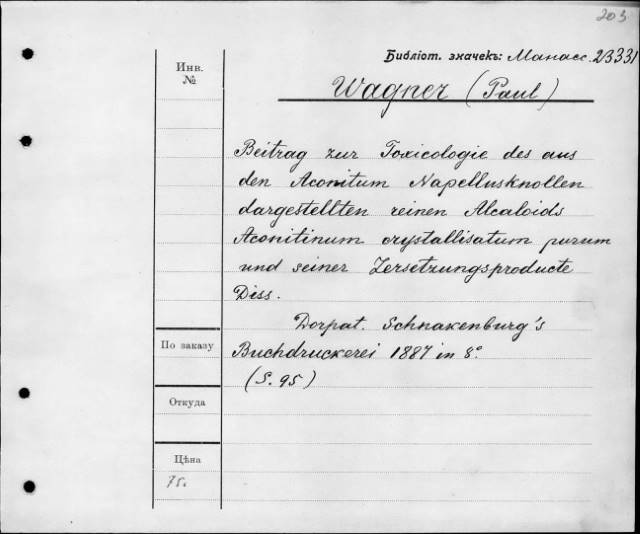 203
Библіот. значекъ: Манасс. 23331
Инв.
№
Wagner (Paul)
Beitrag zur Toxicologie des aus
den Aconitum Napellusknollen
dargestellten reinen Alcaloids
Aconitinum crystallisatum purum
und seiner Zersetzungsproducte
Diss.
Dorpat. Schnakenburg's
Buchdruckerei 1887 in 8°
(S. 95)
По заказу
Откуда
Цѣна
75.